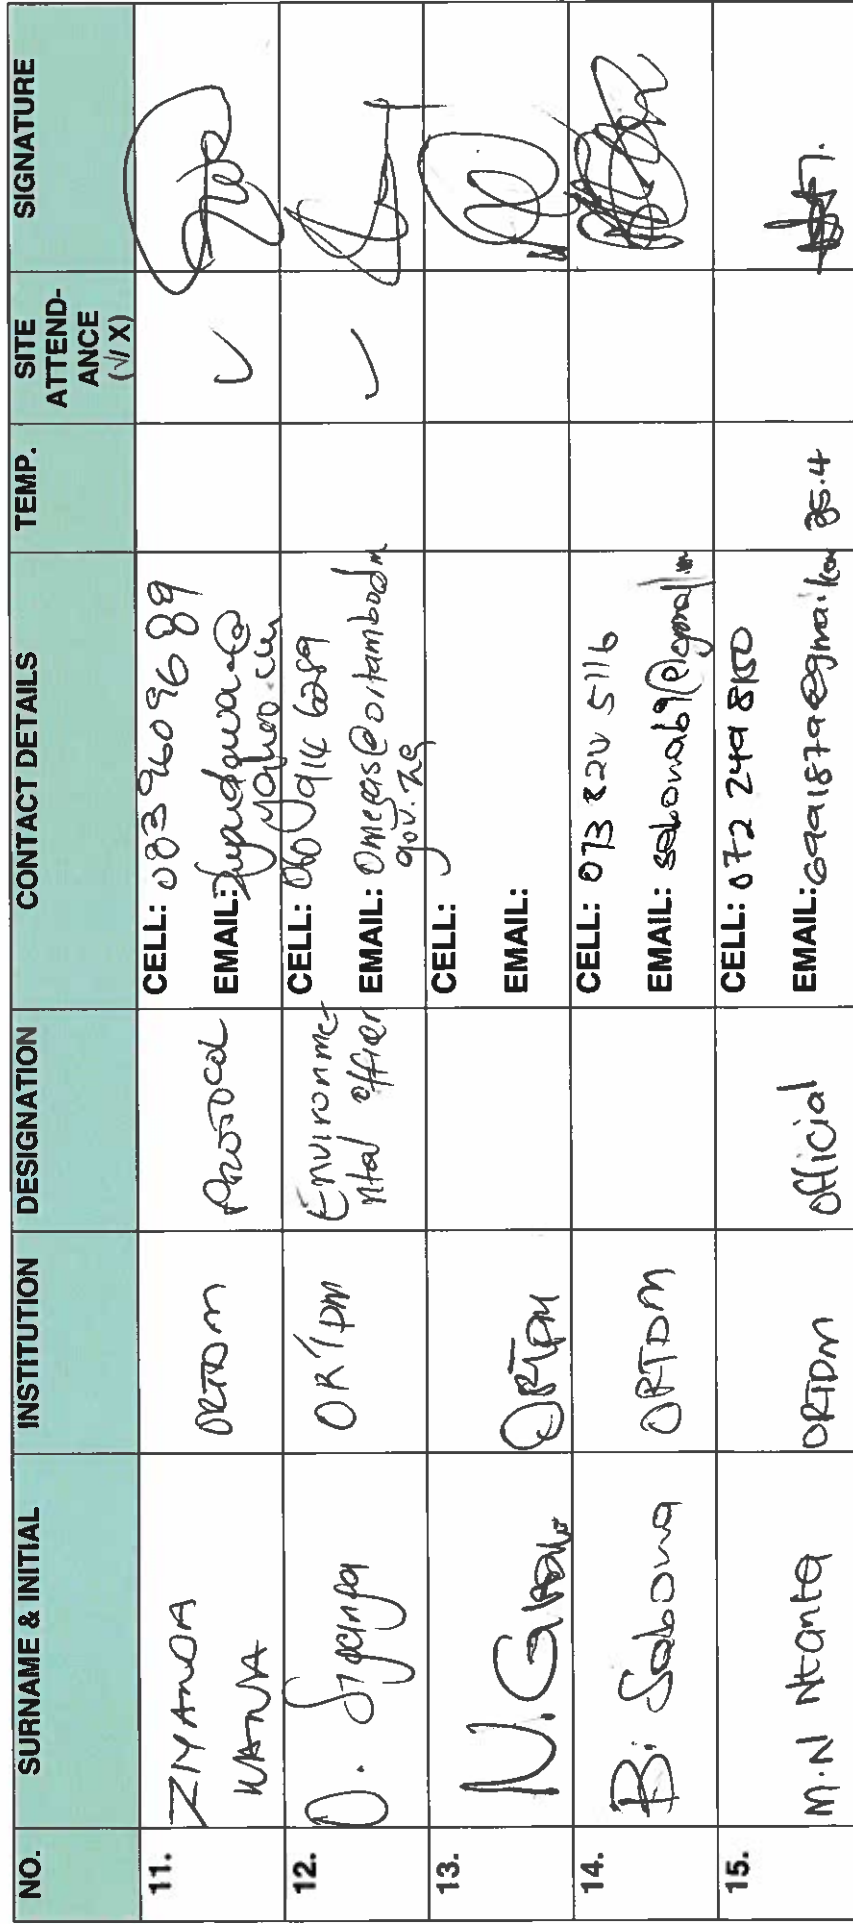 NO. SURNAME & INITIAL INSTITUTION DESIGNATION CONTACT DETAILS TEMP. SITE ATTEND-ANCE (√/ X) SIGNATURE
11. ZIYANDA WANA ORTDM PROTOCOL CELL: 083 9609689 ✓
EMAIL:
12. O. ORTDM Environme-ntal officer CELL: 060 914 6289 ✓
EMAIL: @ortambodm
gov.za
13. N. ORTDM CELL:
EMAIL:
14. B. Sabona ORTDM CELL: 073 820 5116
EMAIL: sabonab9@gmail
15. M.N Ntanta ORTDM official CELL: 072 249 8150
EMAIL: 6991879@gmail.com 35.4